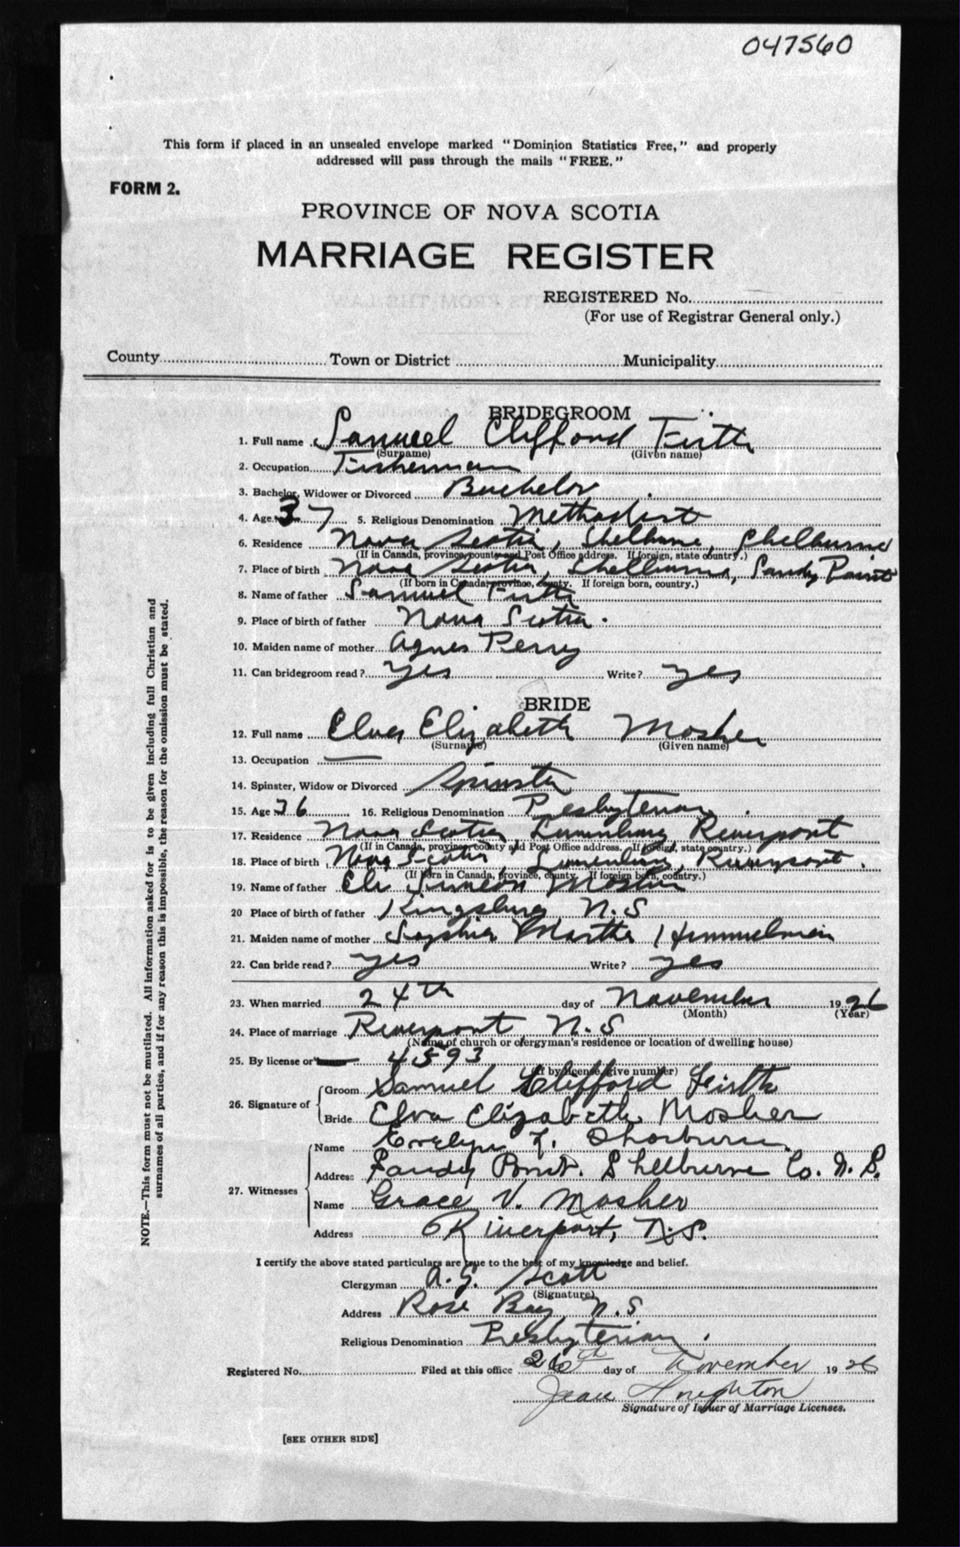 047560
This form if placed in an unsealed envelope marked "Dominion Statistics Free," and properly
addressed will pass through the mails "FREE."
FORM 2.
PROVINCE OF NOVA SCOTIA
MARRIAGE REGISTER
REGISTERED No.
(For use of Registrar General only.)
County Town or District Municipality
BRIDEGROOM
1. Full name Samuel Clifford Firth
(Surname) (Given name)
2. Occupation Fisherman
3. Bachelor, Widower or Divorced Bachelor
4. Age 37 5. Religious Denomination Methodist
6. Residence Nova Scotia, Shelburne, Shelburne
(If in Canada, province, county and Post Office address. If foreign, state country.)
7. Place of birth Nova Scotia, Shelburne, Sandy Point
(If born in Canada, province, county. If foreign born, country.)
8. Name of father Samuel Firth
9. Place of birth of father Nova Scotia.
10. Maiden name of mother Agnes Perry
11. Can bridegroom read? Yes Write? Yes
BRIDE
12. Full name Elva Elizabeth Mosher
(Surname) (Given name)
13. Occupation
14. Spinster, Widow or Divorced Spinster
15. Age 26 16. Religious Denomination Presbyterian
17. Residence Nova Scotia Lunenburg Riverport
(If in Canada, province, county and Post Office address. If foreign, state country.)
18. Place of birth Nova Scotia, Lunenburg, Riverport.
(If born in Canada, province, county. If foreign born, country.)
19. Name of father Eli Simeon Mosher
20 Place of birth of father Kingsburg N.S
21. Maiden name of mother Sophia Martha Himmelman
22. Can bride read? Yes Write? Yes
23. When married 24th day of November 1926
(Month) (Year)
24. Place of marriage Riverport N.S
(Name of church or clergyman's residence or location of dwelling house)
25. By license or 4593
(If by license, give number)
26. Signature of
Groom Samuel Clifford Firth
Bride Elva Elizabeth Mosher
27. Witnesses
Name Evelyn F.
Address Sandy Point. Shelburne Co. N.S.
Name Grace V. Mosher
Address Riverport, N.S.
I certify the above stated particulars are true to the best of my knowledge and belief.
Clergyman A.G. Scott
(Signature)
Address Rose Bay N.S
Religious Denomination Presbyterian.
Registered No. Filed at this office 26th day of November 1926
Jean Houghton
Signature of Issuer of Marriage Licenses.
[SEE OTHER SIDE]
NOTE.—This form must not be mutilated. All information asked for is to be given including full Christian and
surnames of all parties, and if for any reason this is impossible, the reason for the omission must be stated.